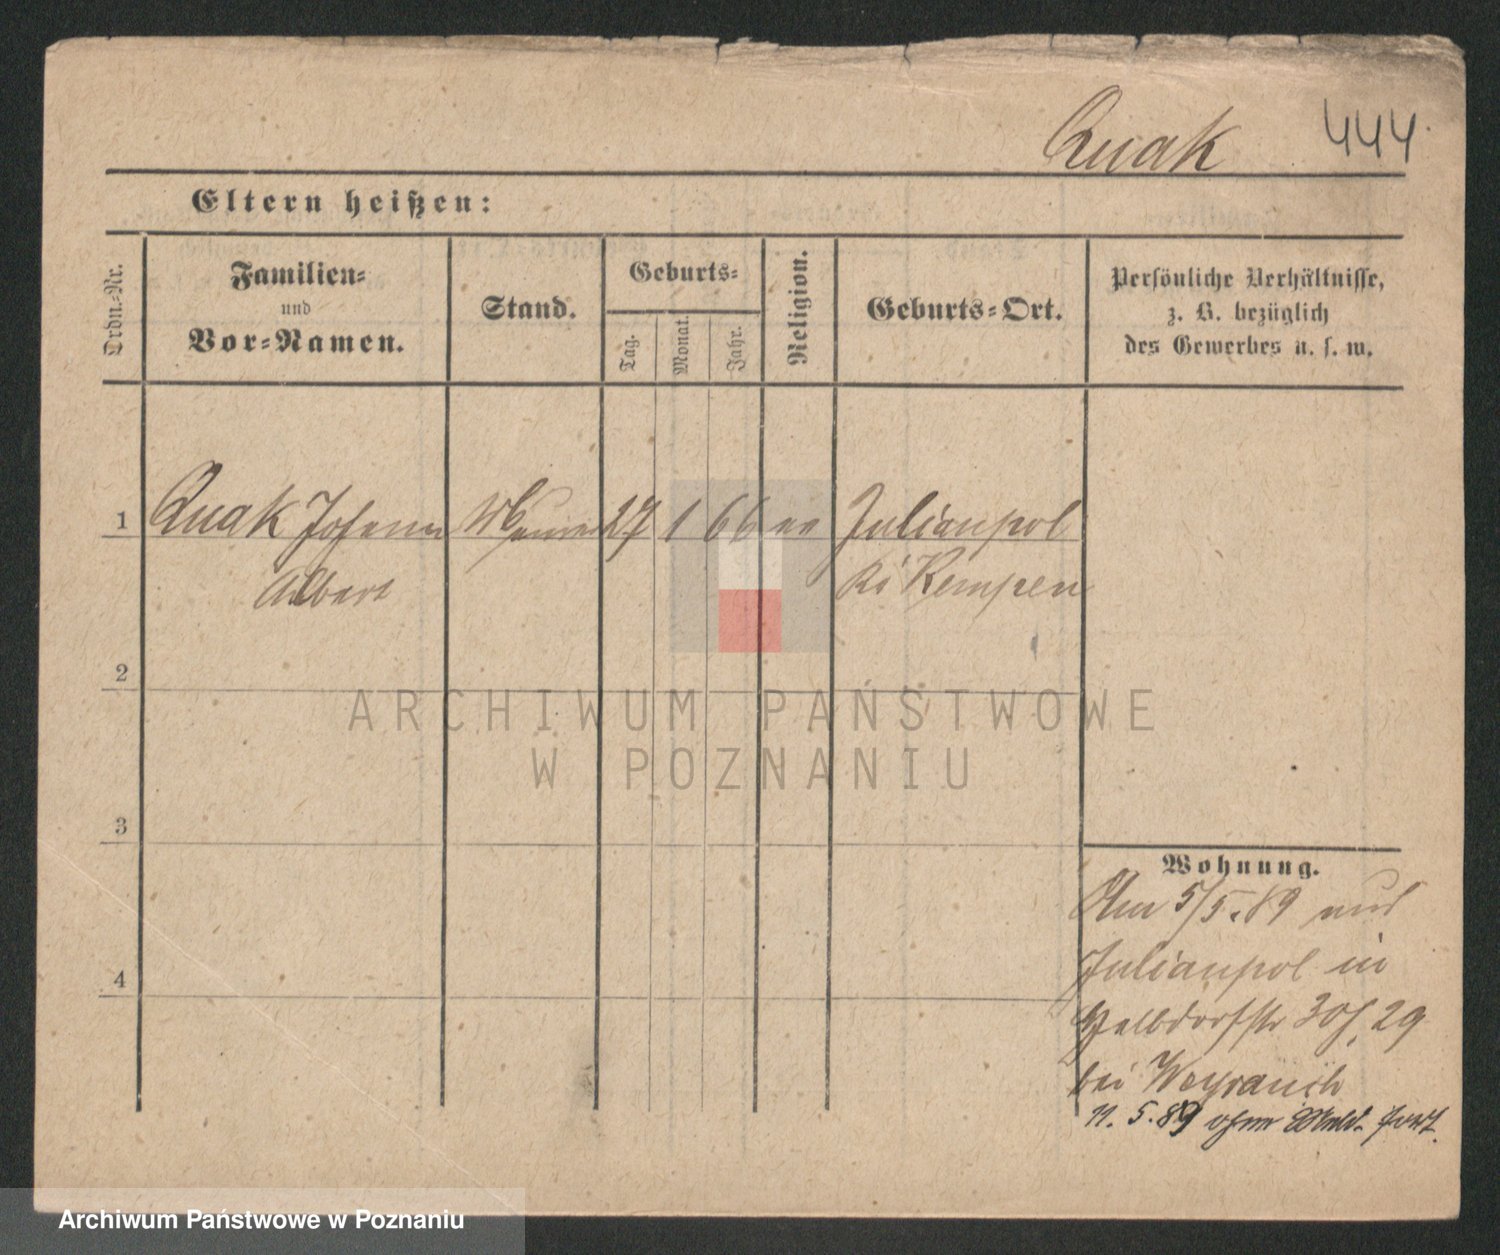 Quak 444
Eltern heißen:
Ordn.-Nr.
Familien-
und
Vor-Namen.
Stand.
Geburts-
Tag.
Monat.
Jahr.
Religion.
Geburts-Ort.
Persönliche Verhältnisse,
z. B. bezüglich
des Gewerbes u. s. w.
1 Quak Johann Maurer 27 1 66 ev Julianpol
Albert Kr Kempen
2
3
4
Wohnung.
Am 5/5.89 aus
Julianpol in
Halbdorfstr 30/29
bei Weyrauch
11. 5. 89 ohne Meld. fort.
ARCHIWUM PAŃSTWOWE
W POZNANIU
Archiwum Państwowe w Poznaniu